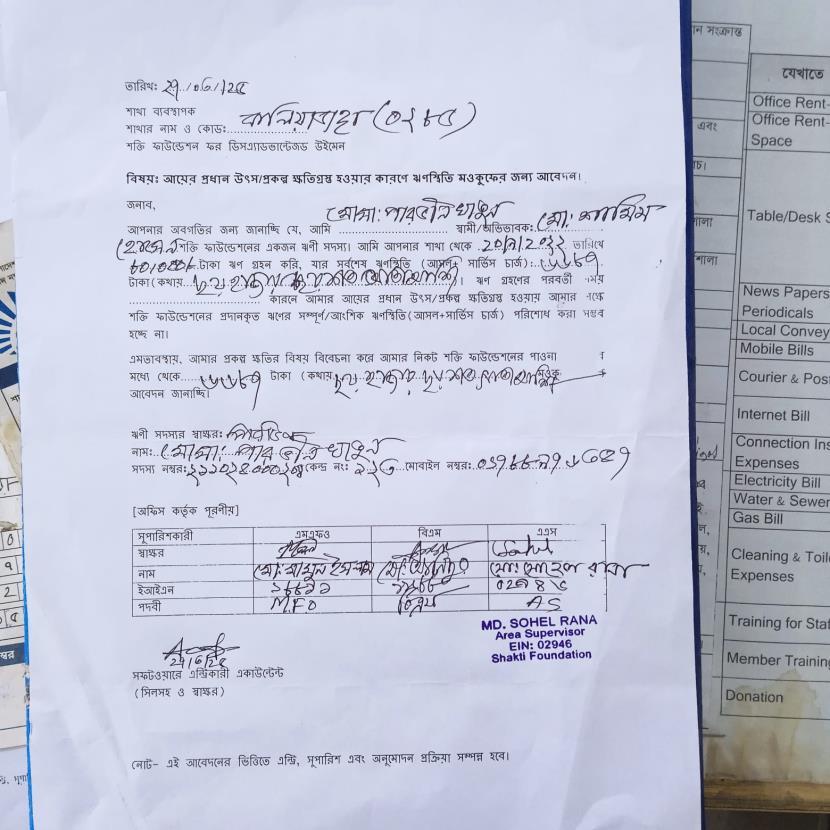 তারিখঃ ২৭/০৬/২৫
শাখা ব্যবস্থাপক
শাখার নাম ও কোডঃ
শক্তি ফাউন্ডেশন ফর ডিসএ্যাডভান্টেজড উইমেন
বিষয়ঃ আয়ের প্রধান উৎস/প্রকল্প ক্ষতিগ্রস্ত হওয়ার কারণে ঋণস্থিতি মওকুফের জন্য আবেদন।
জনাব,
আপনার অবগতির জন্য জানাচ্ছি যে, আমি মোসা: পারভীন খাতুন স্বামী/অভিভাবকঃ মো: শামিম
হোসেন শক্তি ফাউন্ডেশনের একজন ঋণী সদস্য। আমি আপনার শাখা থেকে তারিখে
টাকা ঋণ গ্রহন করি, যার সর্বশেষ ঋণস্থিতি (আসল+ সার্ভিস চার্জ)ঃ ৬৬৮৭
টাকা (কথায় ছয় হাজার ছয় শত সাতাশি)। ঋণ গ্রহণের পরবর্তী সময়
কারনে আমার আয়ের প্রধান উৎস/প্রকল্প ক্ষতিগ্রস্ত হওয়ায় আমার পক্ষে
শক্তি ফাউন্ডেশনের প্রদানকৃত ঋণের সম্পূর্ণ/আংশিক ঋণস্থিতি(আসল+সার্ভিস চার্জ) পরিশোধ করা সম্ভব
হচ্ছে না।
এমতাবস্থায়, আমার প্রকল্প ক্ষতির বিষয় বিবেচনা করে আমার নিকট শক্তি ফাউন্ডেশনের পাওনা
মধ্যে থেকে ৬৬৮৭ টাকা (কথায় ছয় হাজার ছয় শত সাতাশি
আবেদন জানাচ্ছি।
ঋণী সদস্যর স্বাক্ষরঃ পারভীন
নামঃ মোসা: পারভীন খাতুন
সদস্য নম্বরঃ কেন্দ্র নংঃ মোবাইল নম্বরঃ
[অফিস কর্তৃক পূরণীয়]
সুপারিশকারী এমএফও বিএম এএস
স্বাক্ষর
নাম মো: মামুন ইসলাম মো: সোহেল রানা
ইআইএন ০২৯৪৬
পদবী M.F.O বিএম AS
MD. SOHEL RANA
Area Supervisor
EIN: 02946
Shakti Foundation
সফটওয়ারে এন্ট্রিকারী একাউন্টেন্ট
(সিলসহ ও স্বাক্ষর)
নোট- এই আবেদনের ভিত্তিতে এন্ট্রি, সুপারিশ এবং অনুমোদন প্রক্রিয়া সম্পন্ন হবে।
যেখাতে
Office Rent-
Office Rent-
Space
Table/Desk
News Papers
Periodicals
Local Convey
Mobile Bills
Courier & Pos
Internet Bill
Connection Ins
Expenses
Electricity Bill
Water & Sewer
Gas Bill
Cleaning & Toile
Expenses
Training for Staf
Member Training
Donation